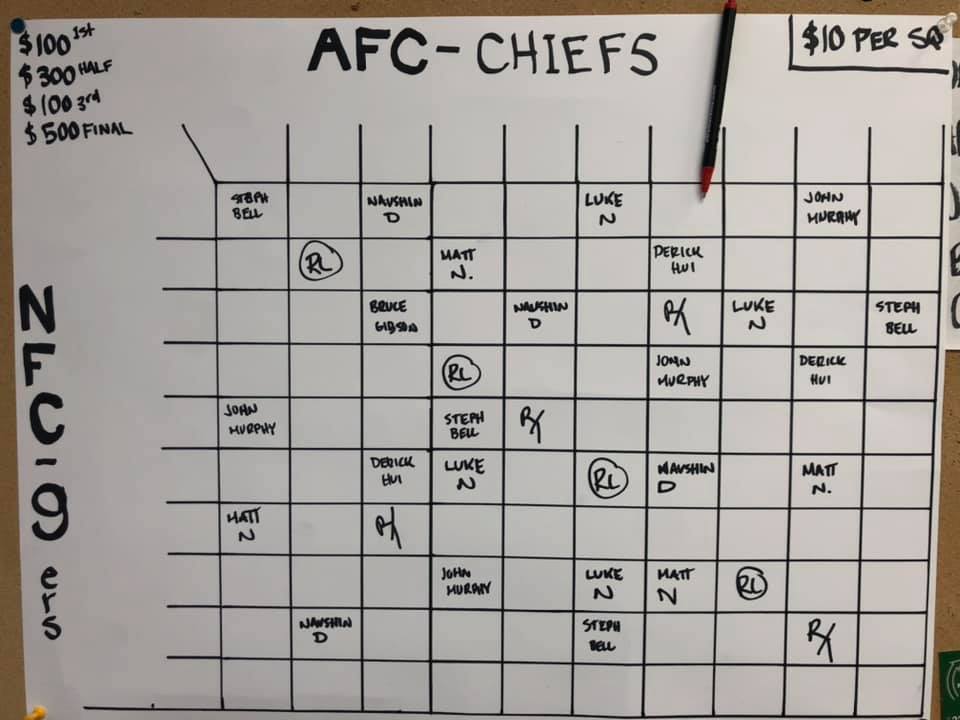 $100 1st
$300 HALF
$100 3rd
$500 FINAL
AFC - CHIEFS
$10 PER SQ
NFC-9ers
STEPH BELL
NAVSHIN D
LUKE N
JOHN MURPHY
RL
MATT N.
DERICK HUI
BRUCE GIBSON
NAVSHIN D
RX
LUKE N
STEPH BELL
RL
JOHN MURPHY
DERICK HUI
JOHN MURPHY
STEPH BELL
RX
DERICK HUI
LUKE N
RL
NAVSHIN D
MATT N.
MATT N
RX
JOHN MURPHY
LUKE N
MATT N
RL
NAVSHIN D
STEPH BELL
RX